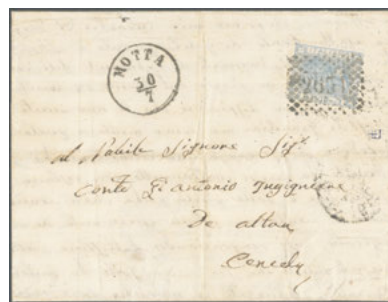 MOTTA
30
7
al Nobile Signore Sigr
Conte Gi antonio
De altan
Ceneda